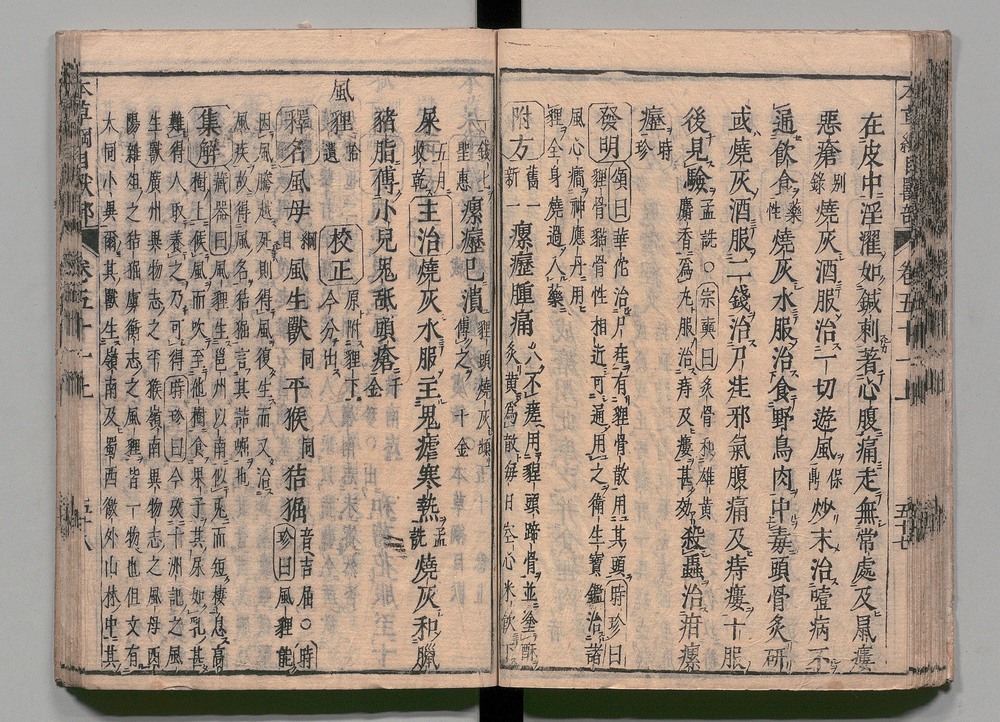 在皮中淫濯如鍼刺著心腹痛走無常處及鼠瘻
惡瘡 別錄 燒灰酒服治一切遊風 保昇 炒末治噎病不
通飲食 藥性 燒灰水服治食野鳥肉中毒頭骨炙研
或燒灰酒服二錢治尸疰邪氣腹痛及痔瘻十服
後見驗 孟詵○宗奭曰炙骨和雄黃
麝香為丸服治痔及瘻甚效 殺蟲治疳瘰
癧 時珍
發明 頌曰華佗治尸疰有狸骨散用其頭時珍曰
狸骨貓骨性相近可通用之衛生寶鑑治諸
風心癎神應丹用
狸全身燒過入藥
附方 舊一
新一 瘰癧腫痛 久不瘥用狸頭蹄骨並塗酥
炙黃為散每日空心米飲下
一錢匕
聖惠 瘰癧已潰 狸頭燒灰頻
傅之 千金
屎 五月
收乾 主治燒灰水服主鬼瘧寒熱 孟詵 燒灰和臘
豬脂傅小兒鬼舐頭瘡 千金
風狸 拾遺 校正 原附狸下
今分出
釋名風母 綱目 風生獸 同 平猴 同 狤𤟎 音吉屈○時
珍曰風狸能
因風騰越死則得風復生而又治
風疾故得風名狤𤟎言其詰崛也
集解 藏器曰風狸生邕州以南似兔而短棲息高
樹上候風而吹至他樹食果子其尿如乳甚
難得人取養之乃可得時珍曰今攷十洲記之風
生獸廣州異物志之平猴嶺南異物志之風母酉
陽雜俎之狤𤟎虞衡志之風狸皆一物也但文有
大同小異爾其獸生嶺南及蜀西徼外山林中其
本草綱目獸部 卷五十一上 五十八
卷五十一上 五十七